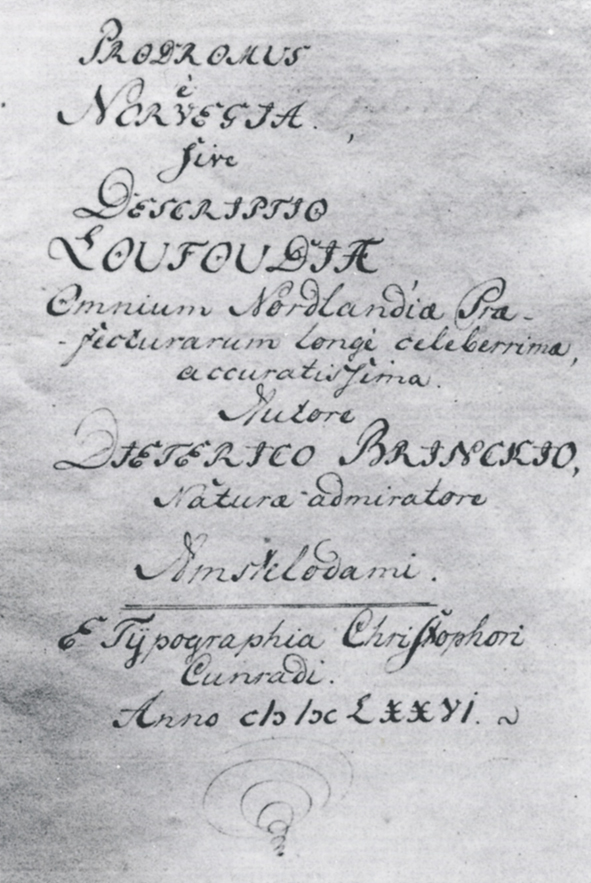 PRODROMUS
è
NORVEGIA.,
sive
DESCRIPTIO
LOUFOUDIÆ
Omnium Nordlandiæ Præ-
-fecturarum longè celeberrimæ,
accuratissima.
Autore
DIETERICO BRINCKIO,
Naturæ admiratore
Amstelodami.
E Tÿpographia Christophori
Cunradi.
Anno cIↄ Iↄc LXXVI.